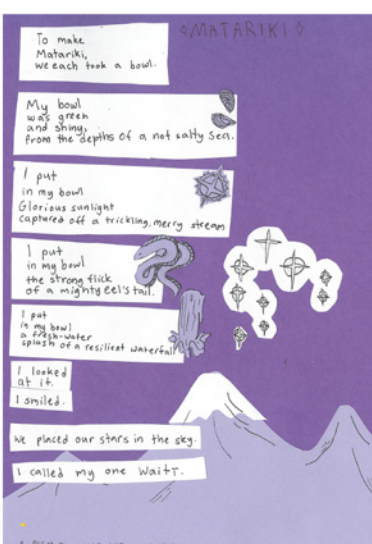 MATARIKI
To make
Matariki,
we each took a bowl.
My bowl
was green
and shiny,
from the depths of a not salty sea.
I put
in my bowl
Glorious sunlight
captured off a trickling, merry stream
I put
in my bowl
the strong flick
of a mighty eel's tail.
I put
in my bowl
a fresh-water
splash of a resilient waterfall
I looked
at it.
I smiled.
We placed our stars in the sky.
I called my one Waitī.